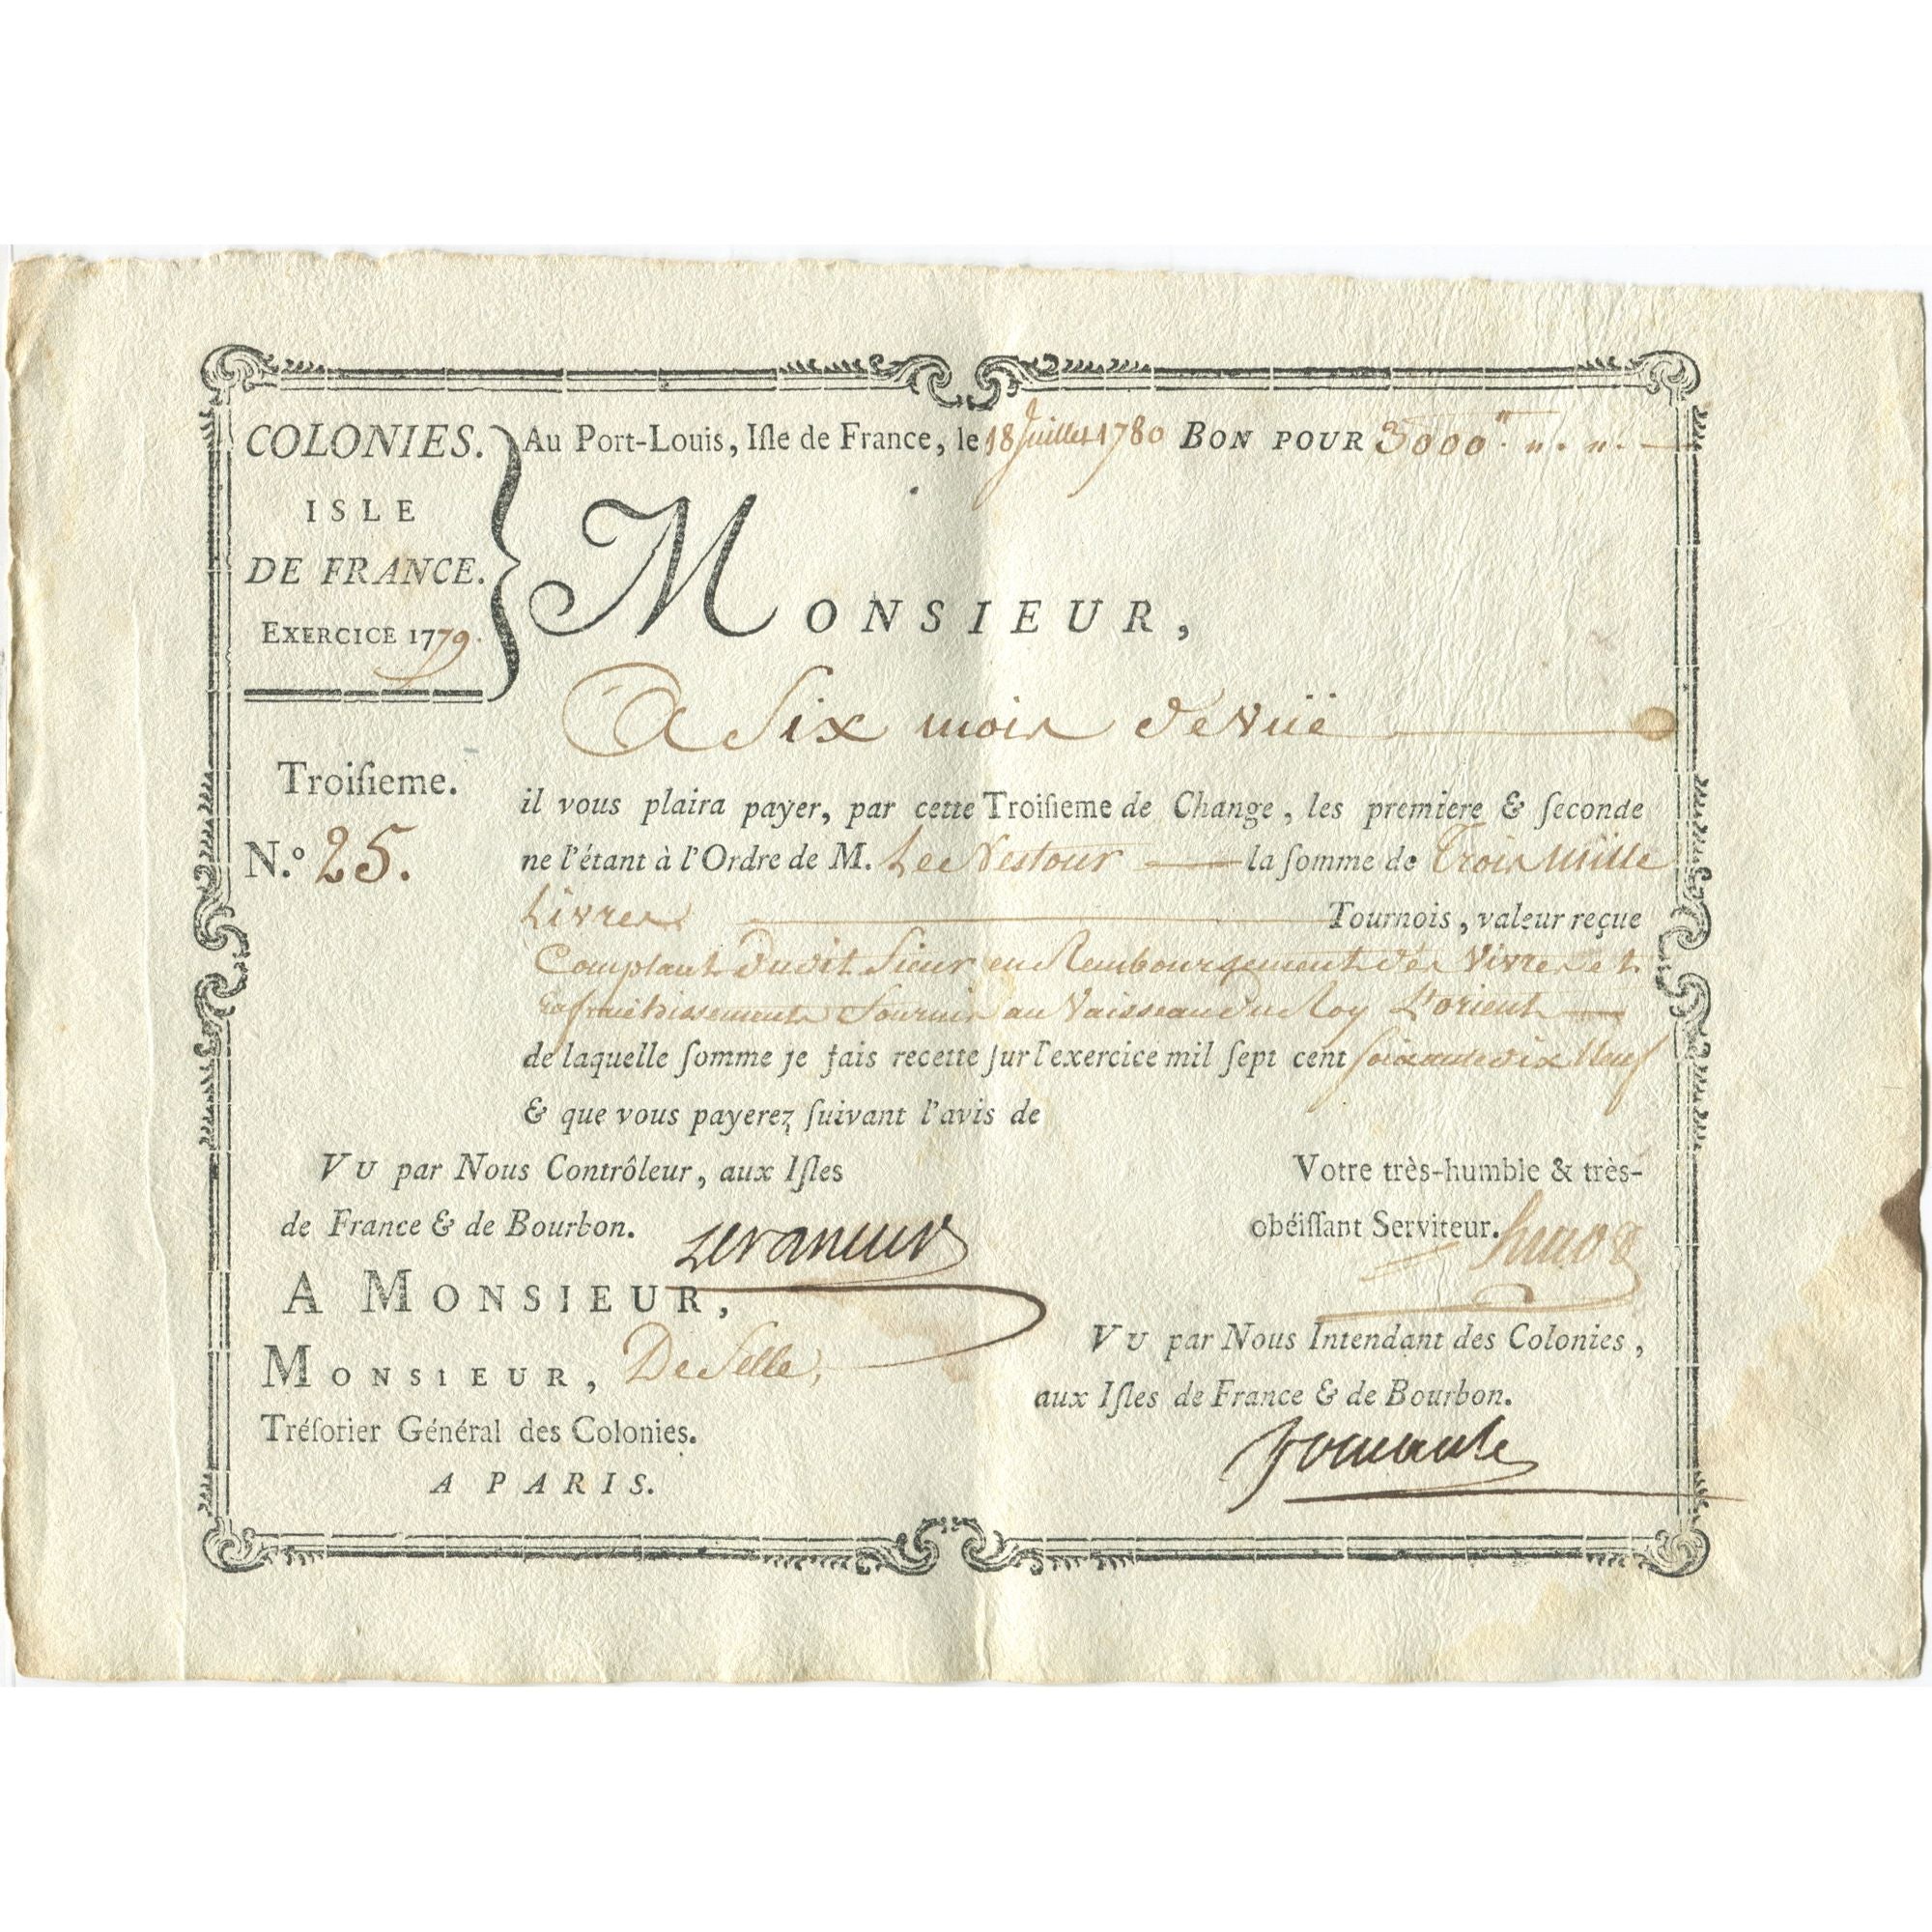 COLONIES.
ISLE
DE FRANCE.
EXERCICE 1779.
Au Port-Louis, Iſle de France, le 18 Juillet 1780 BON POUR 3000
MONSIEUR,
A Six mois de vüe
Troiſieme.
N.º 25.
il vous plaira payer, par cette Troiſieme de Change, les premiere & ſeconde
ne l'étant à l'Ordre de M. Lee Nestour la ſomme de Trois Mille
Livres Tournois, valeur reçue
Comptant dudit Sieur en Remboursement des Vivres et
Rafraichissements Fournis au Vaisseau du Roy L'orient
de laquelle ſomme je fais recette ſur l'exercice mil ſept cent ſoixante dix Neuf
& que vous payerez ſuivant l'avis de
VU par Nous Contrôleur, aux Iſles
de France & de Bourbon.
Votre très-humble & très-
obéiſſant Serviteur.
A MONSIEUR,
MONSIEUR, De Selle,
Tréſorier Général des Colonies.
A PARIS.
VU par Nous Intendant des Colonies,
aux Iſles de France & de Bourbon.